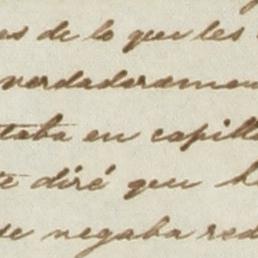 es de lo que les
verdaderamen
taba en capill
te diré que h
se negaba red